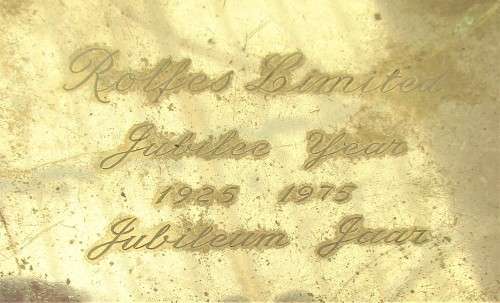 Rolfes Limited
Jubilee Year
1925 1975
Jubileum Jaar